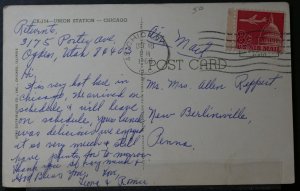 CR-114—UNION STATION — CHICAGO
Return to
3175 Porter Ave,
Ogden, Utah 84403
Hi,
It is very hot here in
Chicago. We arrived on
schedule, & will leave
on schedule, your lunch
was delicious, we enjoyed
it so very much & still
have plenty for to-morrow
Thank you so very much &
God Bless you. Love,
50
Air Mail
US AIR MAIL
POST CARD
Mr. Mrs. Allen Reppert,
New Berlinville,
Penna.